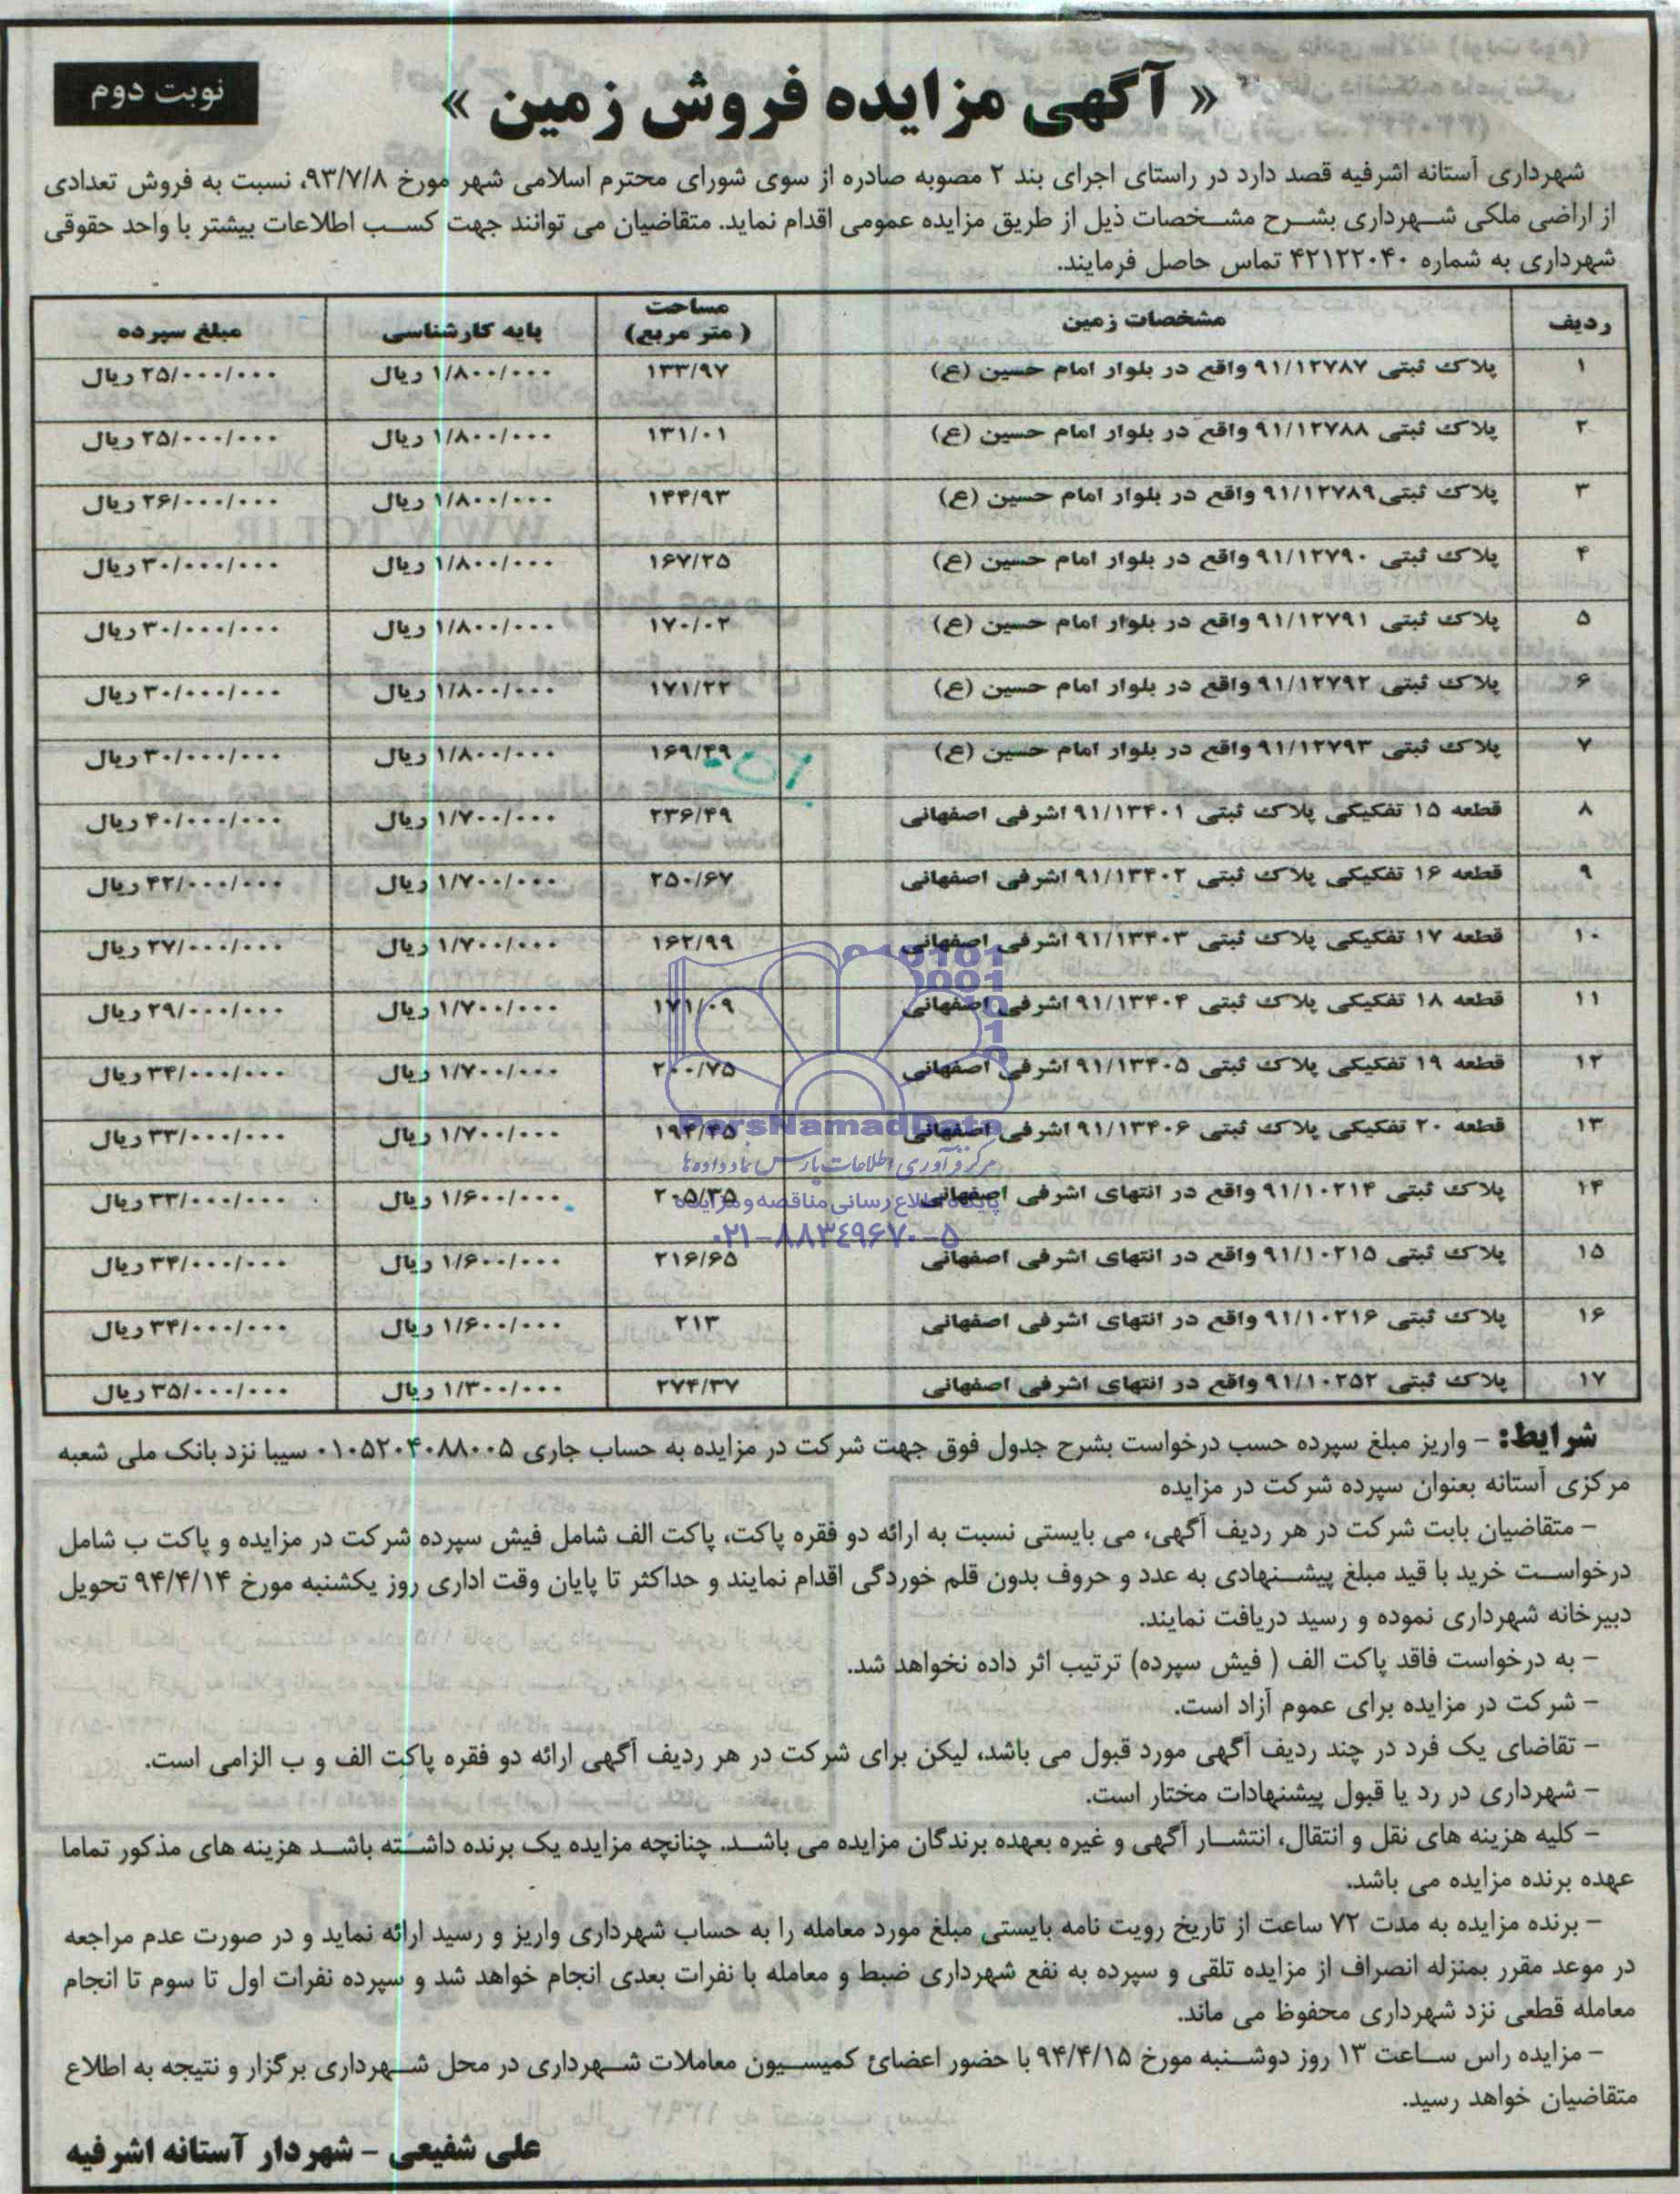 « آگهی مزایده فروش زمین »
نوبت دوم
شهرداری آستانه اشرفیه قصد دارد در راستای اجرای بند ۲ مصوبه صادره از سوی شورای محترم اسلامی شهر مورخ ۹۳/۷/۸، نسبت به فروش تعدادی
از اراضی ملکی شهرداری بشرح مشخصات ذیل از طریق مزایده عمومی اقدام نماید. متقاضیان می توانند جهت کسب اطلاعات بیشتر با واحد حقوقی
شهرداری به شماره ۴۲۱۲۲۰۴۰ تماس حاصل فرمایند.
ردیف مشخصات زمین مساحت (متر مربع) پایه کارشناسی مبلغ سپرده
۱ پلاک ثبتی ۹۱/۱۲۷۸۷ واقع در بلوار امام حسین (ع) ۱۳۳/۹۷ ۱/۸۰۰/۰۰۰ ریال ۲۵/۰۰۰/۰۰۰ ریال
۲ پلاک ثبتی ۹۱/۱۲۷۸۸ واقع در بلوار امام حسین (ع) ۱۳۱/۰۱ ۱/۸۰۰/۰۰۰ ریال ۲۵/۰۰۰/۰۰۰ ریال
۳ پلاک ثبتی ۹۱/۱۲۷۸۹ واقع در بلوار امام حسین (ع) ۱۴۴/۹۳ ۱/۸۰۰/۰۰۰ ریال ۲۶/۰۰۰/۰۰۰ ریال
۴ پلاک ثبتی ۹۱/۱۲۷۹۰ واقع در بلوار امام حسین (ع) ۱۶۷/۲۵ ۱/۸۰۰/۰۰۰ ریال ۳۰/۰۰۰/۰۰۰ ریال
۵ پلاک ثبتی ۹۱/۱۲۷۹۱ واقع در بلوار امام حسین (ع) ۱۷۰/۰۲ ۱/۸۰۰/۰۰۰ ریال ۳۰/۰۰۰/۰۰۰ ریال
۶ پلاک ثبتی ۹۱/۱۲۷۹۲ واقع در بلوار امام حسین (ع) ۱۷۱/۲۲ ۱/۸۰۰/۰۰۰ ریال ۳۰/۰۰۰/۰۰۰ ریال
۷ پلاک ثبتی ۹۱/۱۲۷۹۳ واقع در بلوار امام حسین (ع) ۱۶۹/۴۹ ۱/۸۰۰/۰۰۰ ریال ۳۰/۰۰۰/۰۰۰ ریال
۸ قطعه ۱۵ تفکیکی پلاک ثبتی ۹۱/۱۳۴۰۱ اشرفی اصفهانی ۲۳۶/۴۹ ۱/۷۰۰/۰۰۰ ریال ۴۰/۰۰۰/۰۰۰ ریال
۹ قطعه ۱۶ تفکیکی پلاک ثبتی ۹۱/۱۳۴۰۲ اشرفی اصفهانی ۲۵۰/۶۷ ۱/۷۰۰/۰۰۰ ریال ۴۲/۰۰۰/۰۰۰ ریال
۱۰ قطعه ۱۷ تفکیکی پلاک ثبتی ۹۱/۱۳۴۰۳ اشرفی اصفهانی ۱۶۲/۹۹ ۱/۷۰۰/۰۰۰ ریال ۲۷/۰۰۰/۰۰۰ ریال
۱۱ قطعه ۱۸ تفکیکی پلاک ثبتی ۹۱/۱۳۴۰۴ اشرفی اصفهانی ۱۷۱/۰۹ ۱/۷۰۰/۰۰۰ ریال ۲۹/۰۰۰/۰۰۰ ریال
۱۲ قطعه ۱۹ تفکیکی پلاک ثبتی ۹۱/۱۳۴۰۵ اشرفی اصفهانی ۲۰۰/۷۵ ۱/۷۰۰/۰۰۰ ریال ۳۴/۰۰۰/۰۰۰ ریال
۱۳ قطعه ۲۰ تفکیکی پلاک ثبتی ۹۱/۱۳۴۰۶ اشرفی اصفهانی ۱۹۴/۴۵ ۱/۷۰۰/۰۰۰ ریال ۳۳/۰۰۰/۰۰۰ ریال
۱۴ پلاک ثبتی ۹۱/۱۰۲۱۴ واقع در انتهای اشرفی اصفهانی ۲۰۵/۳۵ ۱/۶۰۰/۰۰۰ ریال ۳۳/۰۰۰/۰۰۰ ریال
۱۵ پلاک ثبتی ۹۱/۱۰۲۱۵ واقع در انتهای اشرفی اصفهانی ۲۱۶/۶۵ ۱/۶۰۰/۰۰۰ ریال ۳۴/۰۰۰/۰۰۰ ریال
۱۶ پلاک ثبتی ۹۱/۱۰۲۱۶ واقع در انتهای اشرفی اصفهانی ۲۱۳ ۱/۶۰۰/۰۰۰ ریال ۳۴/۰۰۰/۰۰۰ ریال
۱۷ پلاک ثبتی ۹۱/۱۰۲۵۲ واقع در انتهای اشرفی اصفهانی ۲۷۴/۳۷ ۱/۳۰۰/۰۰۰ ریال ۳۵/۰۰۰/۰۰۰ ریال
ParsNamadData
مرکز فرآوری اطلاعات پارس نماد داده ها
پایگاه اطلاع رسانی مناقصه و مزایده
۰۲۱-۸۸۳۴۹۶۷۰-۵
شرایط: - واریز مبلغ سپرده حسب درخواست بشرح جدول فوق جهت شرکت در مزایده به حساب جاری ۰۱۰۵۲۰۴۰۸۸۰۰۵ سیبا نزد بانک ملی شعبه
مرکزی آستانه بعنوان سپرده شرکت در مزایده
- متقاضیان بابت شرکت در هر ردیف آگهی، می بایستی نسبت به ارائه دو فقره پاکت، پاکت الف شامل فیش سپرده شرکت در مزایده و پاکت ب شامل
درخواست خرید با قید مبلغ پیشنهادی به عدد و حروف بدون قلم خوردگی اقدام نمایند و حداکثر تا پایان وقت اداری روز یکشنبه مورخ ۹۴/۴/۱۴ تحویل
دبیرخانه شهرداری نموده و رسید دریافت نمایند.
- به درخواست فاقد پاکت الف ( فیش سپرده) ترتیب اثر داده نخواهد شد.
- شرکت در مزایده برای عموم آزاد است.
- تقاضای یک فرد در چند ردیف آگهی مورد قبول می باشد، لیکن برای شرکت در هر ردیف آگهی ارائه دو فقره پاکت الف و ب الزامی است.
- شهرداری در رد یا قبول پیشنهادات مختار است.
- کلیه هزینه های نقل و انتقال، انتشار آگهی و غیره بعهده برندگان مزایده می باشد. چنانچه مزایده یک برنده داشته باشد هزینه های مذکور تماما
عهده برنده مزایده می باشد.
- برنده مزایده به مدت ۷۲ ساعت از تاریخ رویت نامه بایستی مبلغ مورد معامله را به حساب شهرداری واریز و رسید ارائه نماید و در صورت عدم مراجعه
در موعد مقرر بمنزله انصراف از مزایده تلقی و سپرده به نفع شهرداری ضبط و معامله با نفرات بعدی انجام خواهد شد و سپرده نفرات اول تا سوم تا انجام
معامله قطعی نزد شهرداری محفوظ می ماند.
- مزایده راس ساعت ۱۳ روز دوشنبه مورخ ۹۴/۴/۱۵ با حضور اعضائ کمیسیون معاملات شهرداری در محل شهرداری برگزار و نتیجه به اطلاع
متقاضیان خواهد رسید.
علی شفیعی - شهردار آستانه اشرفیه